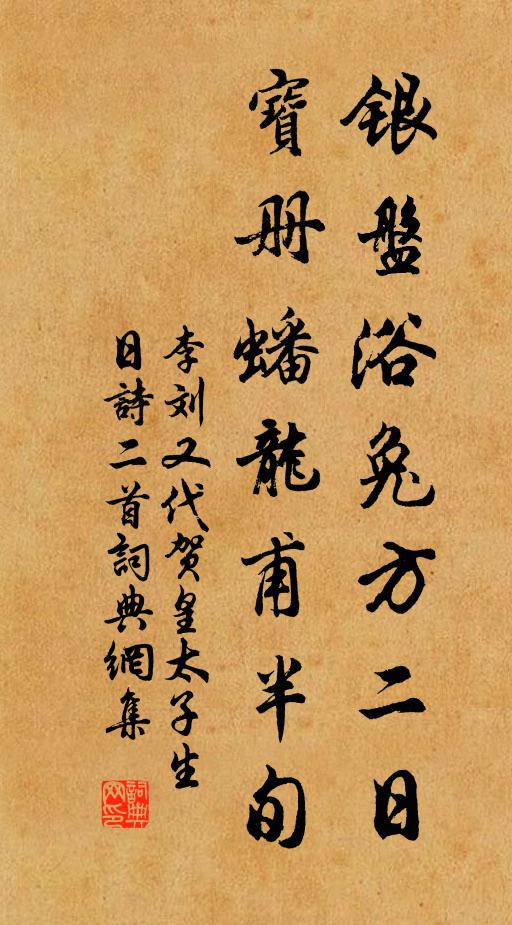 銀盤浴兔方二日
寶册蟠龍甫半旬
李刘又代贺皇太子生
日詩二首詞典網集
詞典
网印